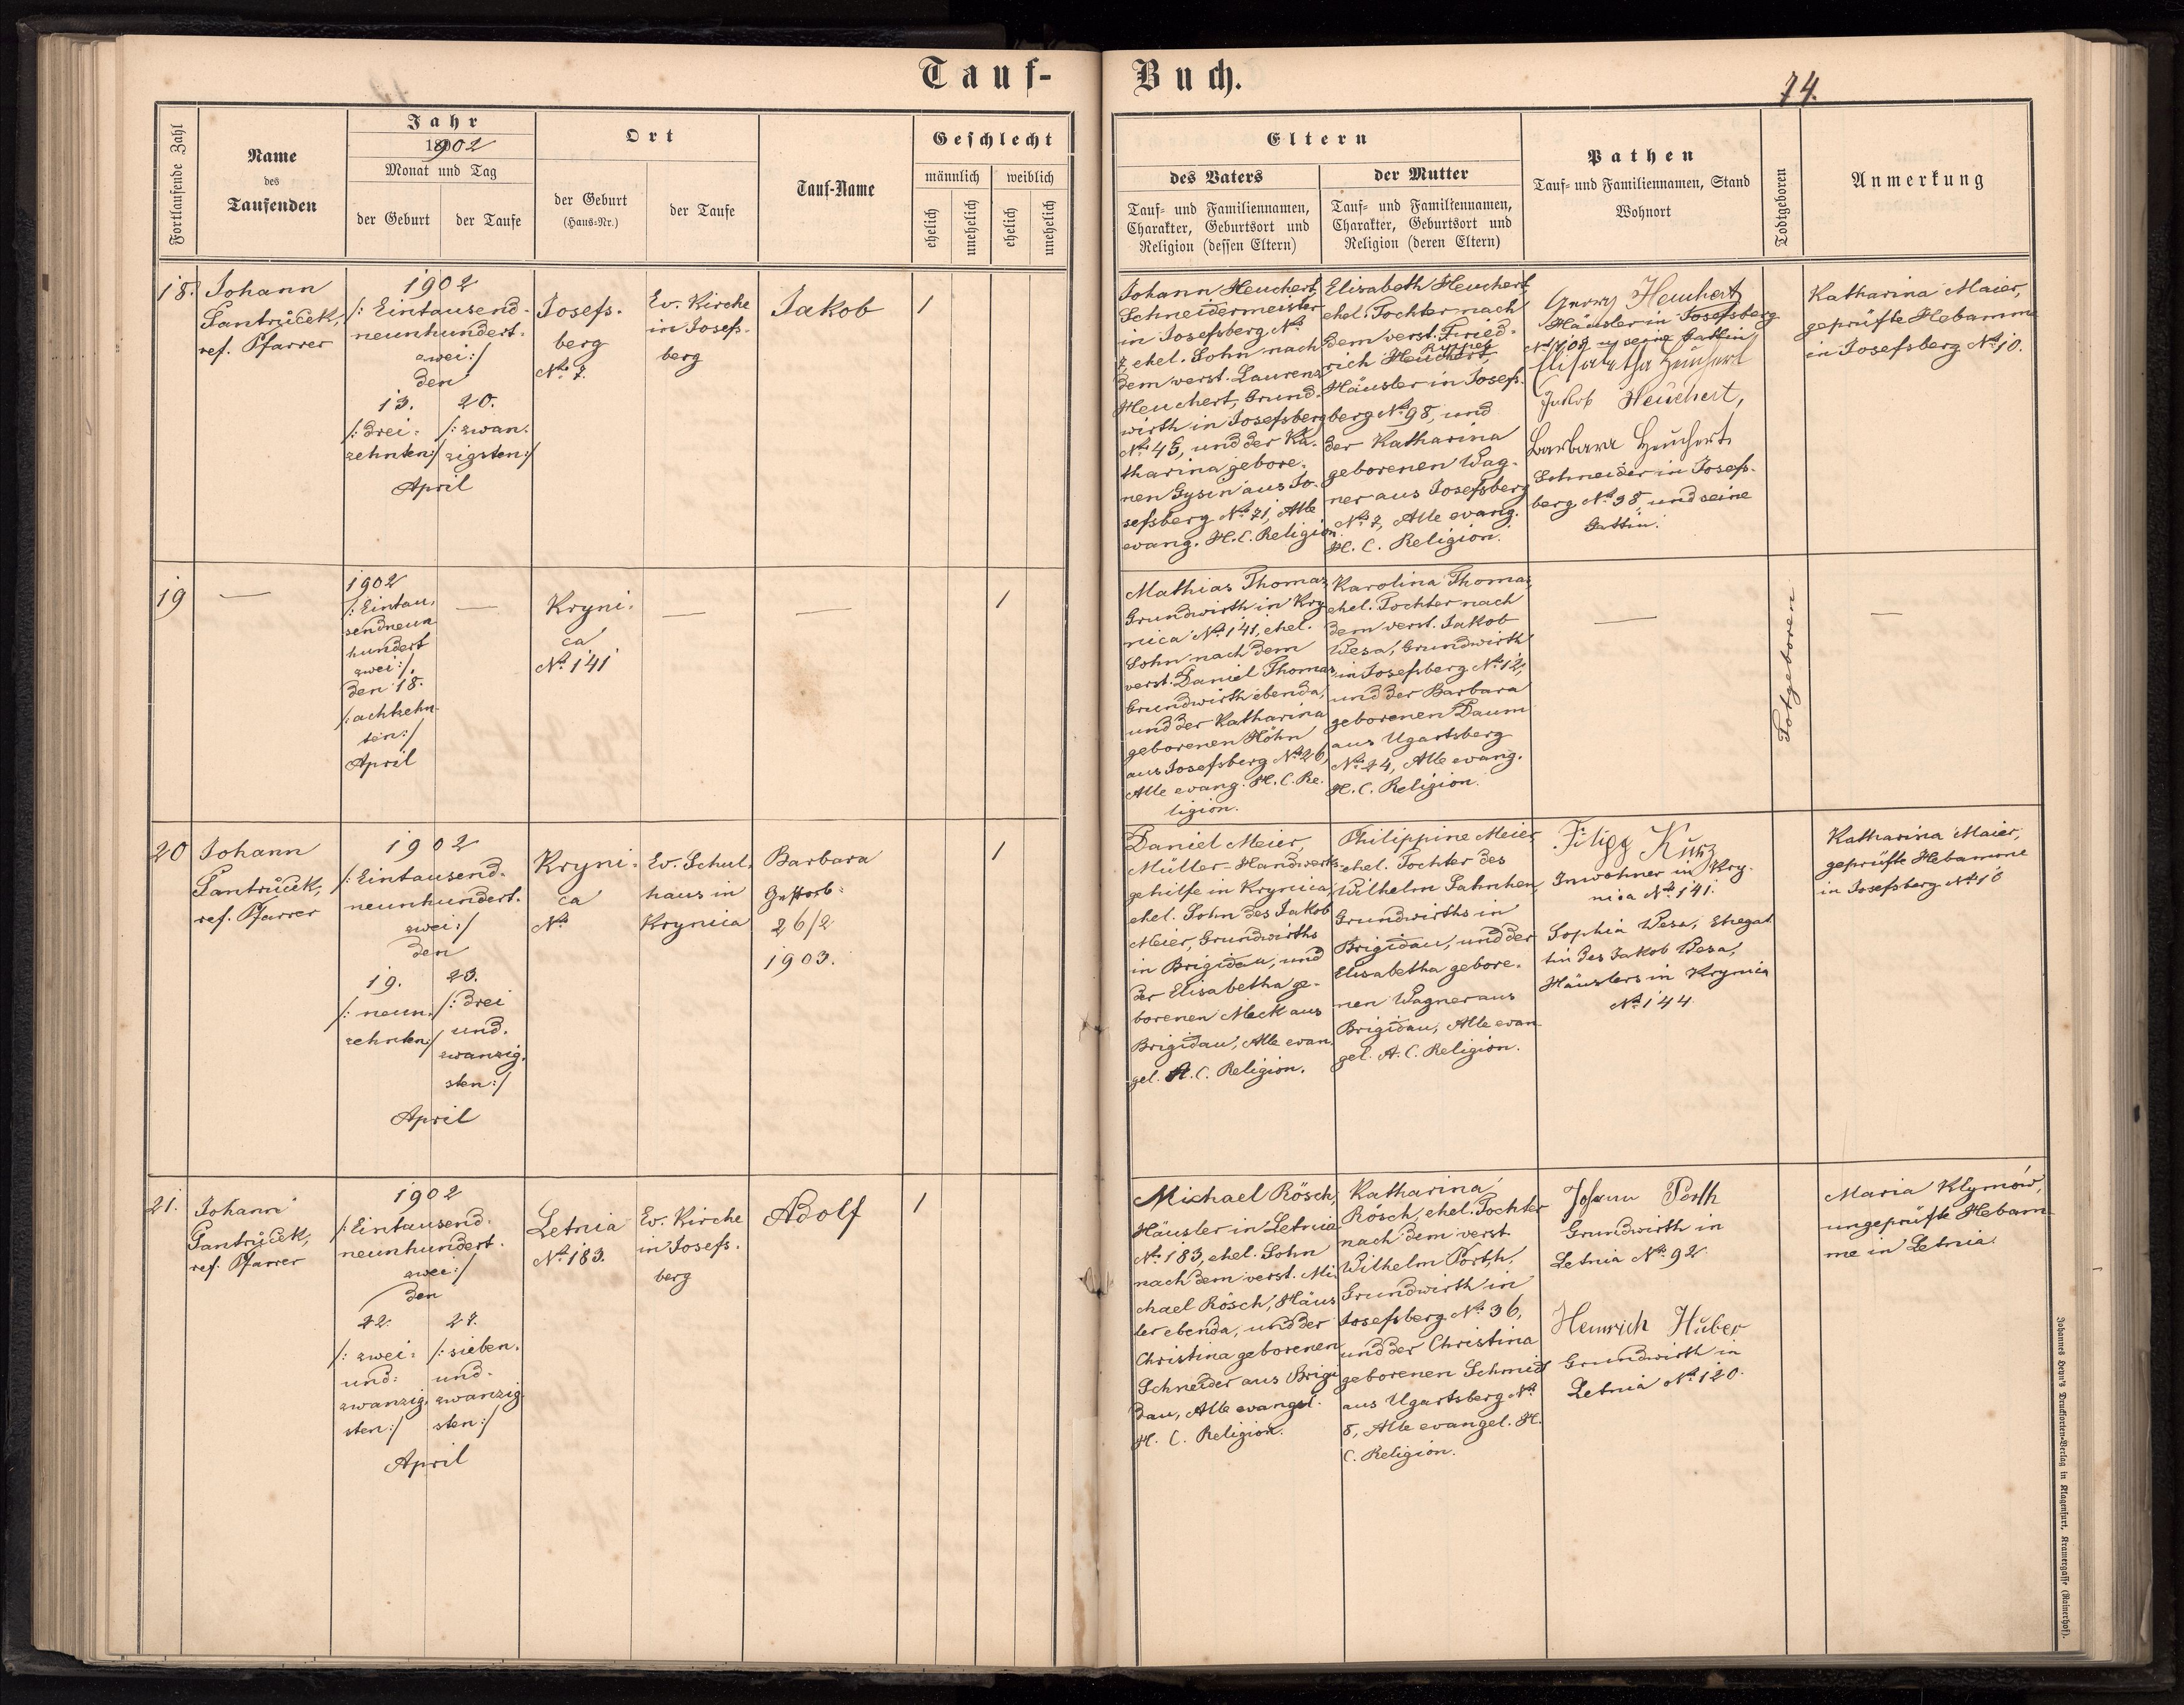 Tauf-
Buch.
74.
Fortlaufende Zahl
Name
des
Taufenden
Jahr
1902
Monat und Tag
der Geburt
der Taufe
Ort
der Geburt
(Haus-Nr.)
der Taufe
Tauf-Name
Geschlecht
männlich
weiblich
ehelich
unehelich
ehelich
unehelich
Eltern
des Vaters
Tauf- und Familiennamen,
Charakter, Geburtsort und
Religion (dessen Eltern)
der Mutter
Tauf- und Familiennamen,
Charakter, Geburtsort und
Religion (deren Eltern)
Pathen
Tauf- und Familiennamen, Stand
Wohnort
Todtgeboren
Anmerkung
18.
Johann
Pantrůček,
ref. Pfarrer
1902
/: Eintausend-
neunhundert-
zwei :/
den
13.
/: drei-
zehnten :/
20.
/: zwan-
zigsten :/
April
Josefs-
berg
No. 7.
Ev. Kirche
in Josefs-
berg
Jakob
1
Johann Heuchert,
Schneidermeister
in Josefsberg No.
7, ehel. Sohn nach
dem verst. Laurenz
Heuchert, Grund-
wirth in Josefsberg
No. 45, und der Ka-
tharina gebore-
nen Gysin aus Jo-
sefsberg No. 71, Alle
evang. H. C. Religion.
Elisabeth Heuchert,
ehel. Tochter nach
dem verst. Fried-
rich Heuchert,
Häusler in Josefs-
berg No. 98, und
der Katharina
geborenen Wag-
ner aus Josefsberg
No. 7, Alle evang.
H. C. Religion.
Heuchert
Häusler in Josefsberg
No. 109 u. seine Gattin
Elisabetha Heuchert
Jakob Heuchert,
Barbara Heuchert
Schneider in Josefs-
berg No. 98, und seine
Gattin.
Katharina Maier,
geprüfte Hebamme
in Josefsberg No. 10.
19
—
1902
/: Eintau-
sendneun
hundert
zwei :/
den 18.
/: achtzehn-
ten :/
April
—
Kryni-
ca
No. 141
—
—
1
Mathias Thomas,
Grundwirth in Kry
nica No. 141, ehel.
Sohn nach dem
verst. Daniel Thomas,
Grundwirth ebenda,
und der Katharina
geborenen Höhn
aus Josefsberg No. 26,
Alle evang. H. C. Re-
ligion.
Karolina Thomas,
ehel. Tochter nach
dem verst. Jakob
Wesa, Grundwirth
in Josefsberg No. 12,
und der Barbara
geborenen Daum
aus Ugartsberg
No. 24, Alle evang.
H. C. Religion.
—
Totgeboren
—
20
Johann
Pantrůček,
ref. Pfarrer
1902
/: Eintausend-
neunhundert-
zwei :/
den
19.
/: neun-
zehnten :/
23.
/: drei
und-
zwanzig-
sten :/
April
Kryni-
ca
No.
Ev. Schul-
haus in
Krynica
Barbara
Gestorb-
26/2
1903.
1
Daniel Meier,
Müller-Handwerks-
gehilfe in Krynica,
ehel. Sohn des Jakob
Meier, Grundwirths
in Brigidau, und
der Elisabetha ge-
borenen Meck aus
Brigidau, Alle evan-
gel. A. C. Religion.
Philippine Meier,
ehel. Tochter des
Wilhelm
Grundwirths in
Brigidau, und der
Elisabetha gebore-
nen Wagner aus
Brigidau, Alle evan-
gel. A. C. Religion.
Filipp Kunz
Inwohner in Kry-
nica No. 141.
Sophia Wesa, Ehegat-
tin des Jakob Wesa,
Häuslers in Krynica
No. 144.
Katharina Maier,
geprüfte Hebamme
in Josefsberg No. 10
21.
Johann
Pantrůček,
ref. Pfarrer
1902
/: Eintausend-
neunhundert-
zwei :/
den
22.
/: zwei-
und-
zwanzig-
sten :/
27.
/: sieben-
und-
zwanzig-
sten :/
April
Letnia
No. 183.
Ev. Kirche
in Josefs-
berg
Adolf
1
Michael Rösch,
Häusler in Letnia
No. 183, ehel. Sohn
nach dem verst. Mi-
chael Rösch, Häus
ler ebenda, und der
Christina geborenen
Schneider aus Brigi
dau, Alle evangel.
H. C. Religion.
Katharina
Rösch, ehel. Tochter
nach dem verst.
Wilhelm Porth,
Grundwirth in
Josefsberg No. 36,
und der Christina
geborenen Schmidt
aus Ugartsberg No.
8, Alle evangel. H.
C. Religion.
Johann Porth
Grundwirth in
Letnia No. 92.
Heinrich Huber
Grundwirth in
Letnia No. 120.
Maria Klymów,
ungeprüfte Hebam-
me in Letnia.
Johannes Heyn's Drucksorten-Verlag in Klagenfurt, Kramergasse (Rainerhof).